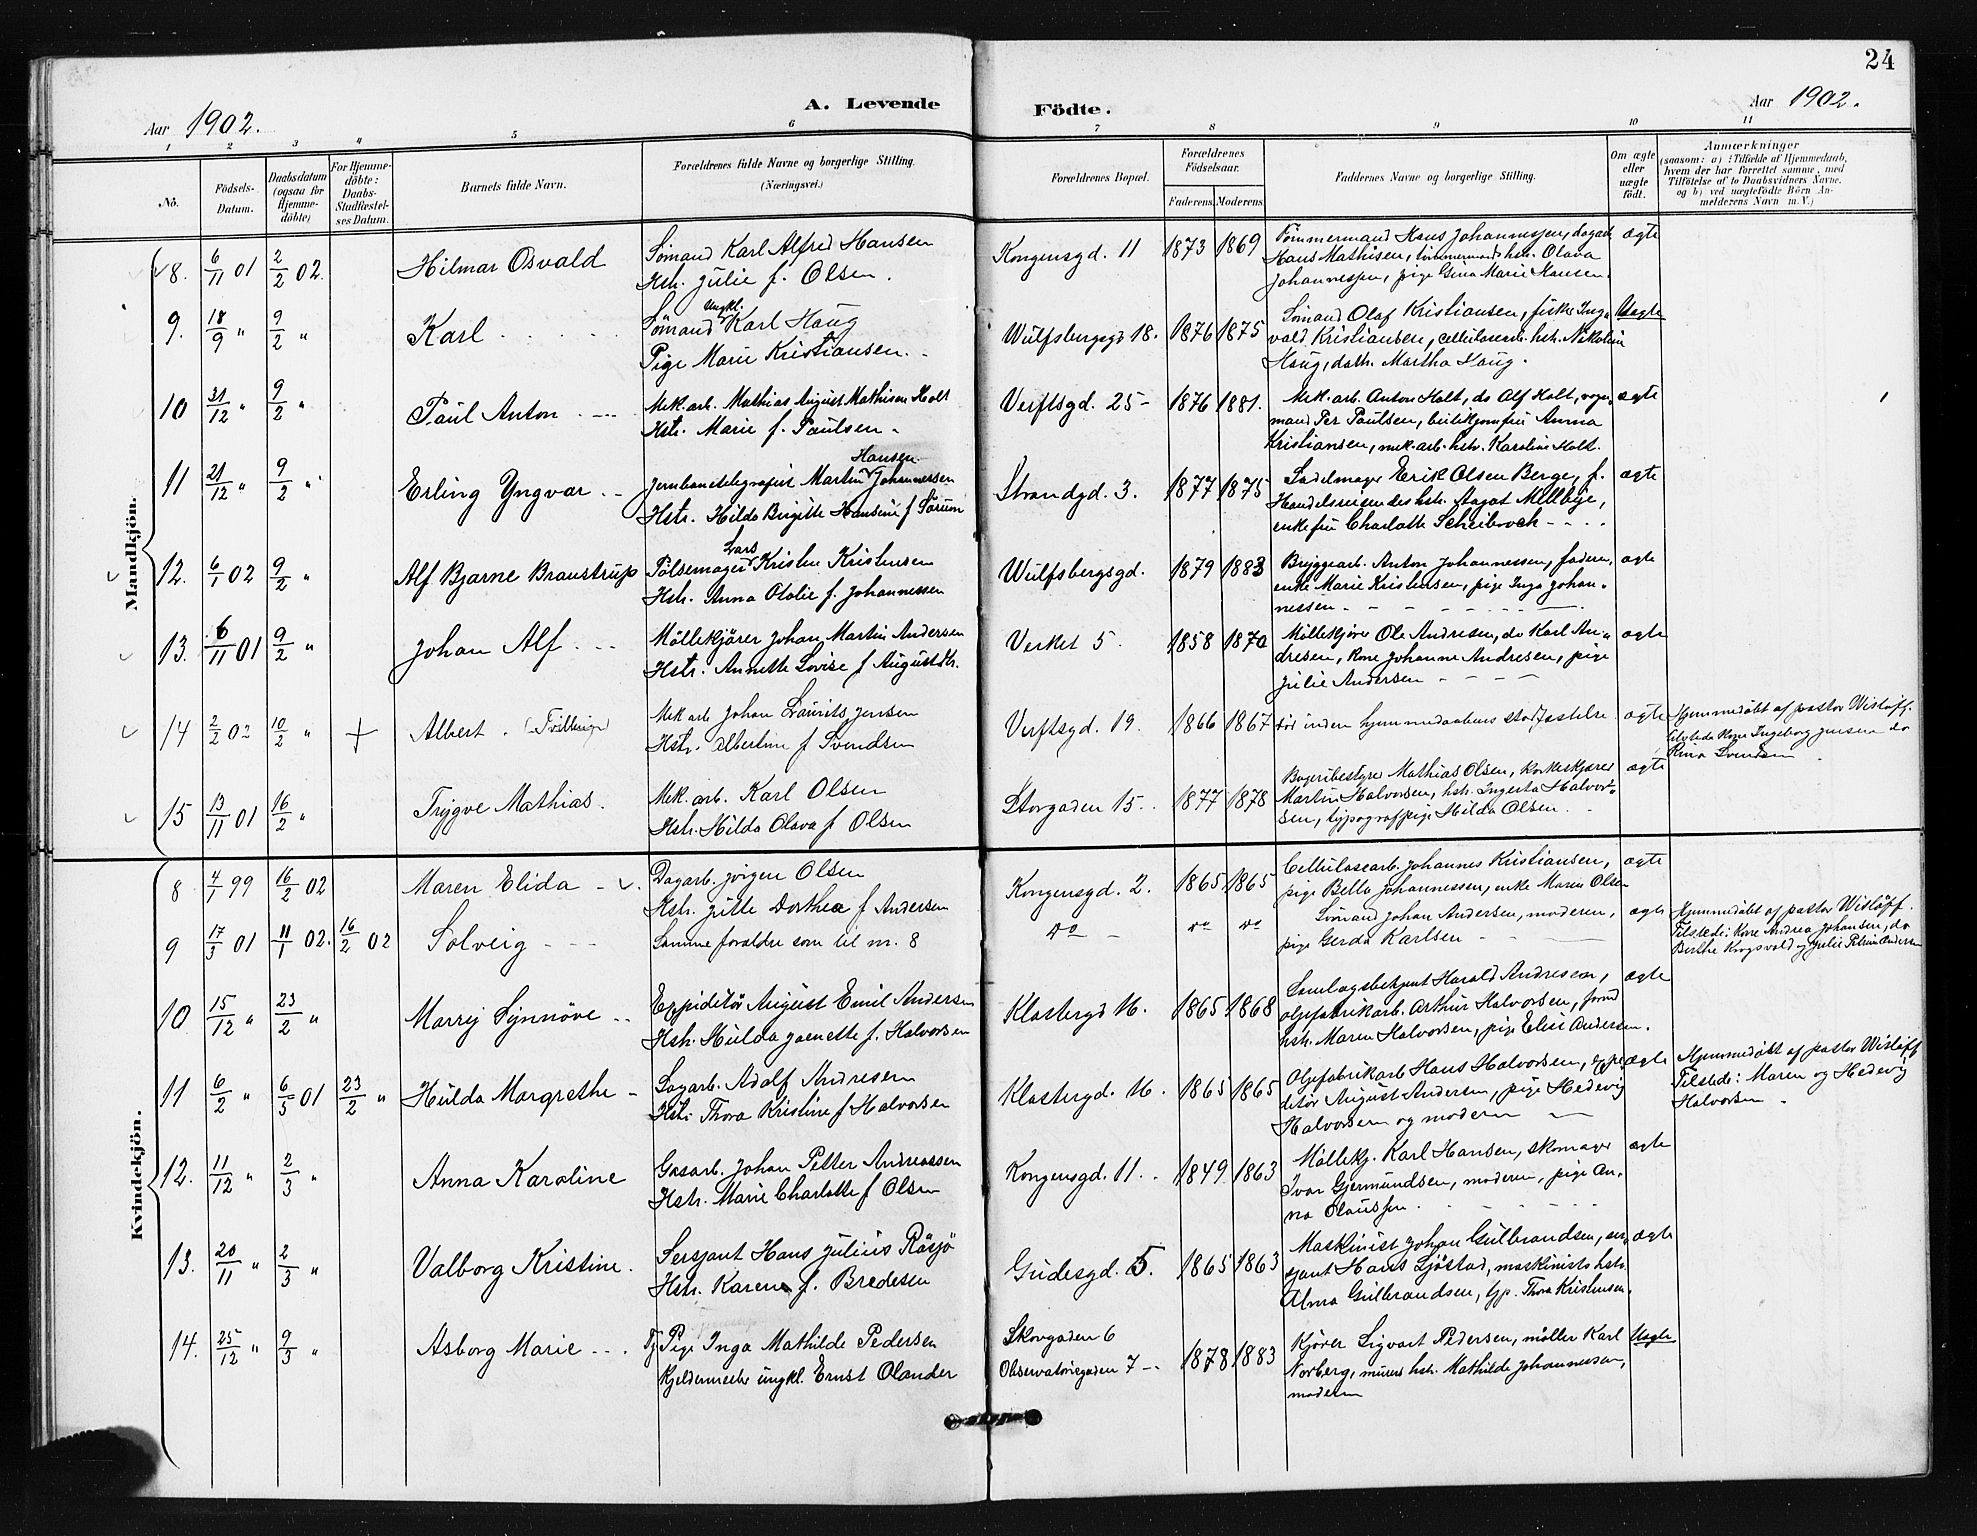 24
A. Levende Födte.
Aar 1902.
Aar 1902.
1 2 3 4 5 6 7 8 9 10 11
No.
Födsels-
Datum.
Daabsdatum
(ogsaa for
Hjemme-
döbte)
For Hjemme-
döbte:
Daabs-
Stadfæstel-
ses Datum.
Barnets fulde Navn.
Forældrenes fulde Navne og borgerlige Stilling.
(Næringsvei.)
Forældrenes Bopæl.
Forældrenes
Födselsaar.
Faderens Moderens
Faddernes Navne og borgerlige Stilling.
Om ægte
eller
uægte
födt.
Anmærkninger
(saasom: a) i Tilfælde af Hjemmedaab,
hvem der har forrettet samme, med
Tilföielse af to Daabsvidners Navne,
og b) ved uægtefödte Börn An-
melderens Navn m. V.)
Mandkjön.
8. 6/11 01 2/2 02. Hilmar Osvald
Sømand Karl Alfred Hansen
Hstr. Julie f. Olsen.
Kongensgd. 11 1873 1869
Tømmermand Hans Johannessen, dagarb.
Hans Mathisen, tømmermands hstr. Olava
Johannessen, pige Gina Marie Hansen.
ægte
9. 18/9 " 9/2 " Karl
Ungkl.
Sømand Karl Haug
Pige Marie Kristiansen.
Wulfsbergsgd 18. 1876 1875
Sömand Olaf Kristiansen, fisker Ing-
vald Kristiansen, cellulosearb. hstr. Nikoline
Haug, dath. Martha Haug.
Uægte
10 31/12 " 9/2 " Paul Anton
Mek. arb. Mathias August Mathisen Holt
Hstr. Marie f. Paulsen
Verftsgd. 25 1876 1881.
Mek. arb. Anton Holt, do Alf Holt, vogn-
mand Per Paulsen, Anna
Kristiansen, mek. arb. hstr. Karoline Holt.
ægte
11 21/12 " 9/2 " Erling Yngvar
Hansen
Jernbanetelegrafist Martin Johannessen
Hstr. Hilda Birgitte Hansine f Sörum
Strandgd. 3. 1877 1875
Sadelmager Eerik Olsen Berge, f.
Handelsreisendes hstr. Aagot Millbye,
enkefru Charlotte
ægte
12. 6/1 02 9/2 " Alf Bjarne Braustrup
Lars
Pölsemager Kristen Kristensen
Hstr. Anna Otalie f. Johannessen
Wulfsbergsgd. 1879 1883
Bryggearb. Anton Johannessen, faderen,
enke Marie Kristensen, pige Inga Johan-
nessen
ægte
13. 6/11 01 9/2 " Johan Alf
Møllekjörer Johan Martin Andersen
Hstr. Annette Lovise f Augustdtr.
Verket 5 1858 1870
Møllekjörer Ole Andresen, do Karl An-
dresen, kone Johanne Andresen, pige
Julie Andersen
ægte
14 2/2 02 10/2 " + Albert. (Tvilling)
Mek arb Johan Laurits Jensen
Hstr. Albertine f Svendsen
Verftsgd. 19. 1866 1867
död inden hjemmedaabens stadfæstelse
ægte
Hjemmedöbt af pastor Wislöff.
Tilstede kone Ingeborg Jensen do
Rina Svendsen
15 13/11 01 16/2 " Trygve Mathias.
Mek. arb. Karl Olsen
Hstr. Hilda Olava f Olsen
Storgaden 15. 1877 1878
Bageribestyrer Mathias Olsen, korkeskjærer
Martin Halvorsen, hstr. Ingerta Halvor-
sen, typografpige Hilda Olsen
ægte
Kvindekjön.
8 4/1 99 16/2 02 Maren Elida
Dagarb. Jörgen Olsen
Hstr. Jutte Dorthea f Andersen
Kongensgd. 2. 1865 1865
Cellulosearb. Johannes Kristiansen,
pige Bella Johannessen, enke Maren Olsen
ægte
9 17/3 01 11/1 02. 16/2 02 Solveig
Samme forældre som til nr. 8
do do do
Sömand Johan Andersen, moderen,
pige Gerda Karlsen
ægte
Hjemmedöbt af pastor Wislöff.
Tilstede: Kone Andrea Johansen, do
Berthe Krogsvold og Julie Petrine Andersen
10 15/12 " 23/2 " Marry Synnöve
Expeditör August Emil Andersen
Hstr. Hulda Jaenette f. Halvorsen
Klostergd 16. 1865 1868
Samlagsbetjent Harald Andresen,
oljefabrikarb. Arthur Halvorsen, formd
hstr. Maren Halvorsen, pige Elise Andersen.
ægte
11 6/2 " 6/5 01 23/2 " Hulda Margrethe
Sagarb. Adolf Andresen
Hstr. Thora Kristine f Halvorsen
Klostergd. 16. 1865 1865
Oljefabrikarb Hans Halvorsen, expe-
ditör August Andersen, pige Hedevig
Halvorsen og moderen
ægte
Hjemmedöbt af pastor Wislöff
Tilstede: Maren og Hedevig
Halvorsen
12. 11/12 " 2/3 " Anna Karoline
Gasarb. Johan Petter Andreassen
Hstr. Marie Charlotte f Olsen
Kongensgd. 11. 1849 1863
Møllekj. Karl Hansen, skomager
Ivar Gjermundsen, moderen, pige An-
na Olaussen.
ægte
13. 20/11 " 2/3 " Valborg Kristine.
Sersjant Hans Julius Råsjö
Hstr. Karen f. Bredesen
Gudesgd. 5. 1865 1863
Maskinist Johan Gulbrandsen, ser-
sjant Hans Sjöstad, maskinists hstr.
Alma Gulbrandsen, tjp. Thora Kristensen.
ægte
14. 25/12 " 9/3 " Asborg Marie
Tj Pige Inga Mathilde Pedersen
Kjeldermester ungkl. Ernst Olander
Skovgaden 6
Observatoriegaden 7 1878 1883
Kjörer Sigvart Pedersen, møller Karl
Norberg, murers hstr. Mathilde Johannessen,
moderen
Uægte